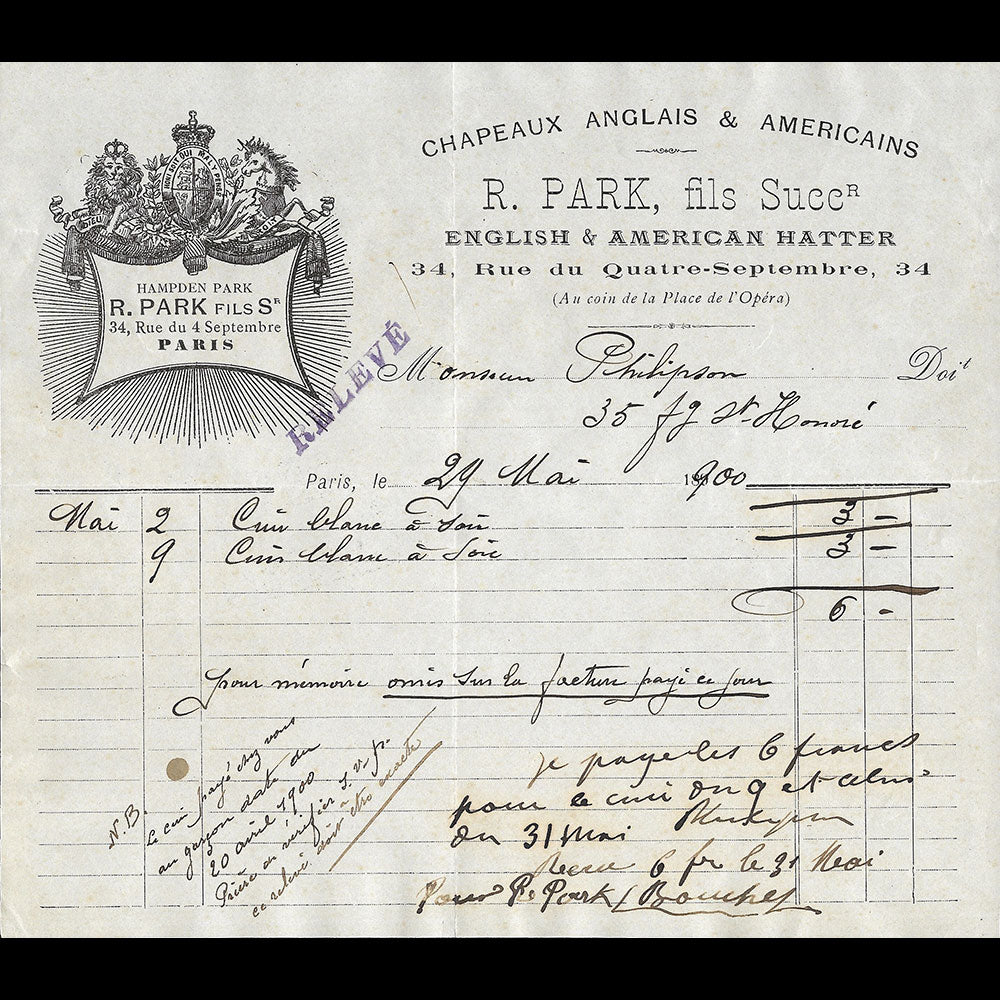 CHAPEAUX ANGLAIS & AMERICAINS
R. PARK, fils Succᴿ
ENGLISH & AMERICAN HATTER
34, Rue du Quatre-Septembre, 34
(Au coin de la Place de l'Opéra)
HONI SOIT QUI MAL Y PENSE
HAMPDEN PARK
R. PARK FILS Sᴿ
34, Rue du 4 Septembre
PARIS
RELEVÉ
Monsieur Philipson Doit
35 fg St-Honoré
Paris, le 29 Mai 1900
Mai 2 Cuir blanc à soie 3 -
9 Cuir blanc à Soie 3 -
6 -
pour mémoire omis sur la facture payé ce jour
N.B. Le cuir payé chez vous
au garçon date du
20 avril 1900
Prière de vérifier s.v.p.
ce relevé doit être exacte
je paye les 6 francs
pour le cuir du 9 et celui
du 31 Mai
Reçu 6 fr le 31 Mai
Pour R. Park